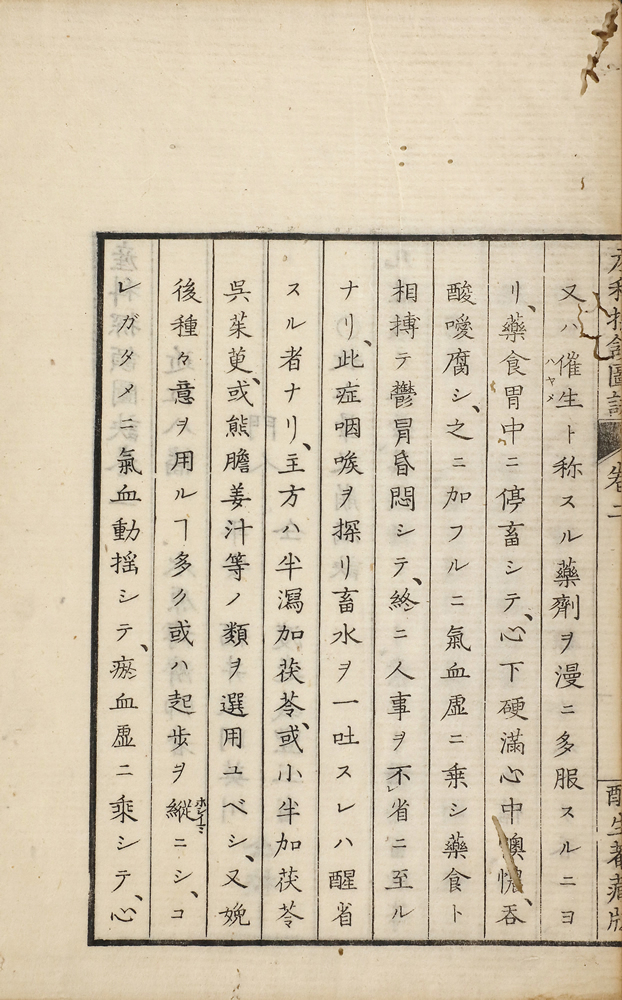 産科探頷圖訣 卷二 酣生菴藏版
又ハ催生ハヤメト称スル藥劑ヲ漫ニ多服スルニヨ
リ、藥食胃中ニ停畜シテ、心下硬滿心中懊憹、吞
酸噯腐シ、之ニ加フルニ氣血虛ニ乘シ藥食ト
相搏テ鬱冒昏悶シテ、終ニ人事ヲ不省ニ至ル
ナリ、此症咽喉ヲ探リ畜水ヲ一吐スレハ醒省
スル者ナリ、主方ハ半瀉加茯苓、或小半加茯苓
呉茱萸、或熊膽姜汁等ノ類ヲ選用ユベシ、又娩
後種々意ヲ用ルヿ多ク或ハ起歩ヲ縱ホシイマヽニシ、コ
レガタメニ氣血動揺シテ、瘀血虛ニ乘シテ、心